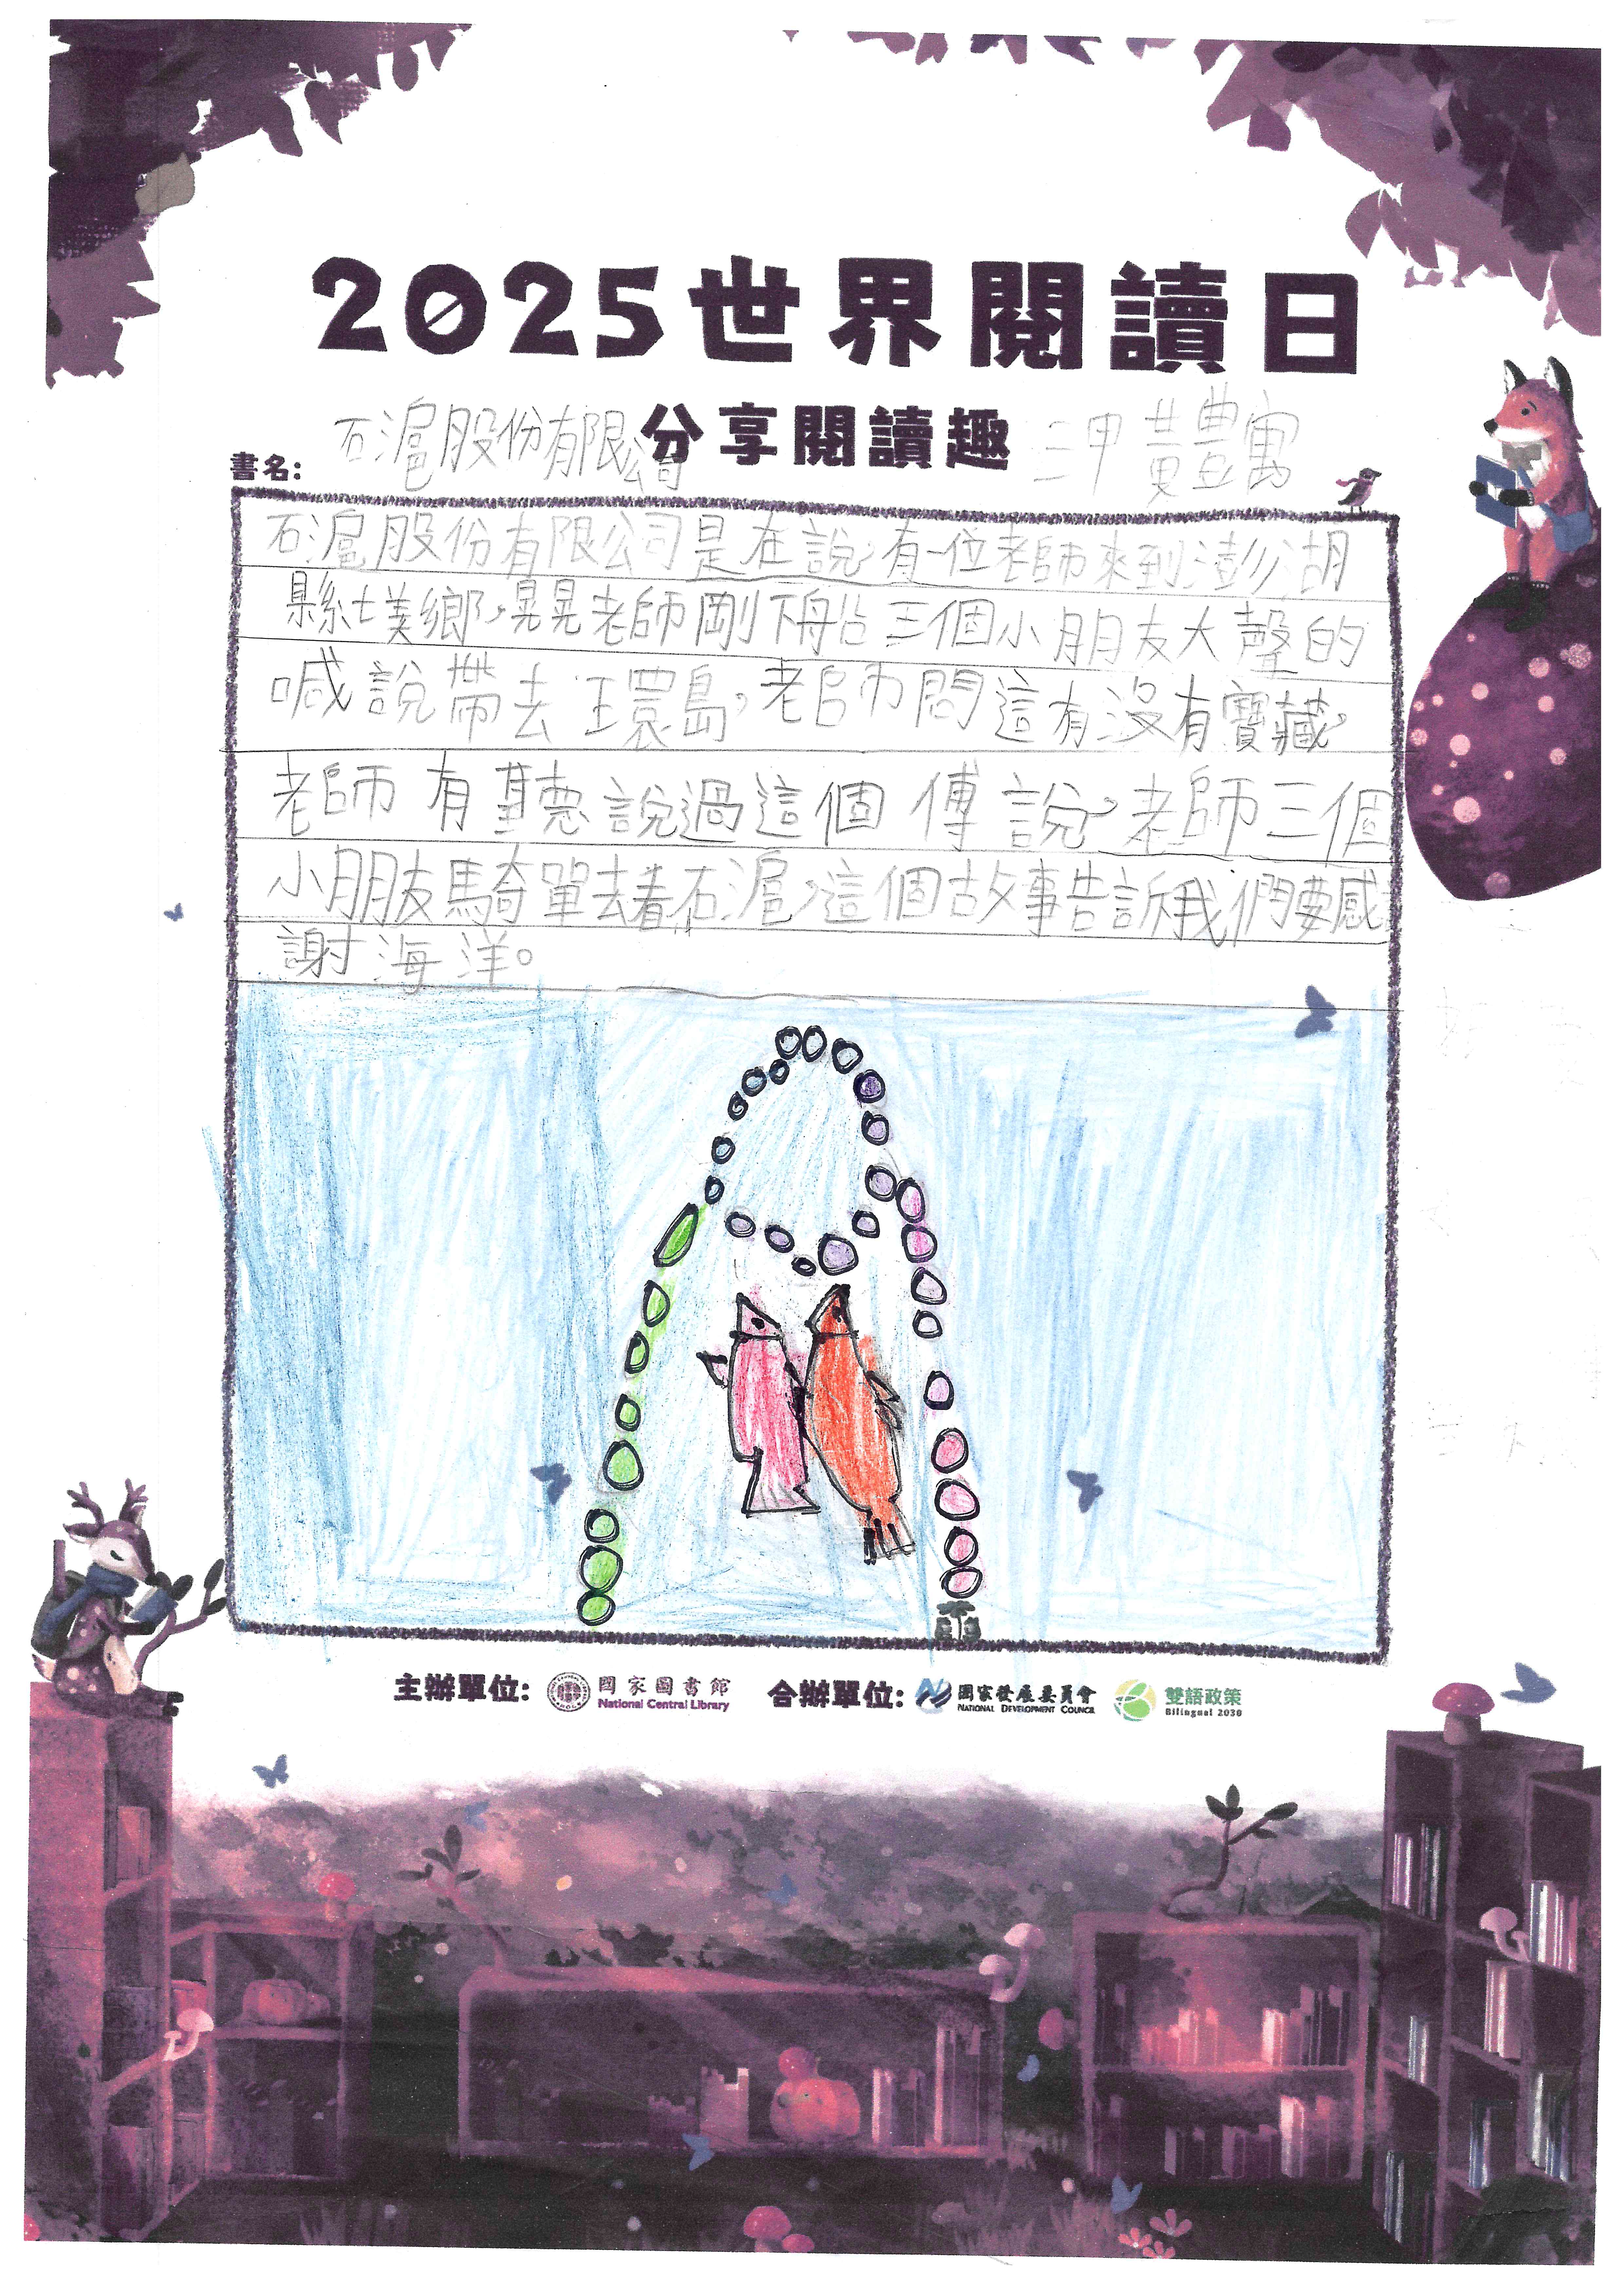 2025世界閱讀日
分享閱讀趣
書名: 石滬股份有限公司 三甲 黃豊寓
石滬股份有限公司是在說,有一位老師來到澎湖
縣七美鄉,晃晃老師剛下船 三個小朋友大聲的
喊說帶去環島,老師問這有沒有寶藏,
老師有聽說過這個傳說,老師三個
小朋友騎單去看石滬,這個故事告訴我們要感
謝海洋。
主辦單位: 國家圖書館 National Central Library 合辦單位: 國家發展委員會 NATIONAL DEVELOPMENT COUNCIL 雙語政策 Bilingual 2030